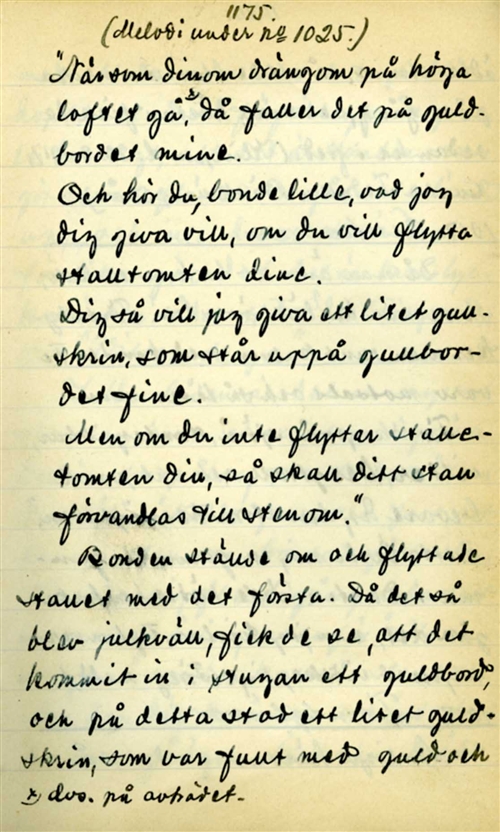 1175.
(Melodi under nº 1025.)
"När som dinom drängom på höga
loftet gå,x) då faller det på guld-
bordet mine.
Och hör du, bonde lille, vad jag
dig giva vill, om du vill flytta
stalltomten dine.
Dig så vill jag giva ett litet gull-
skrin, som står uppå gullbor-
det fine.
Men om du inte flyttar stalle-
tomten din, så skall ditt stall
förvandlas till stenom."
Bonden stände om och flyttade
stallet med det första. Då det så
blev julkväll, fick de se, att det
kommit in i stugan ett guldbord,
och på detta stod ett litet guld-
skrin, som var fullt med guld och
x) dvs. på avträdet.